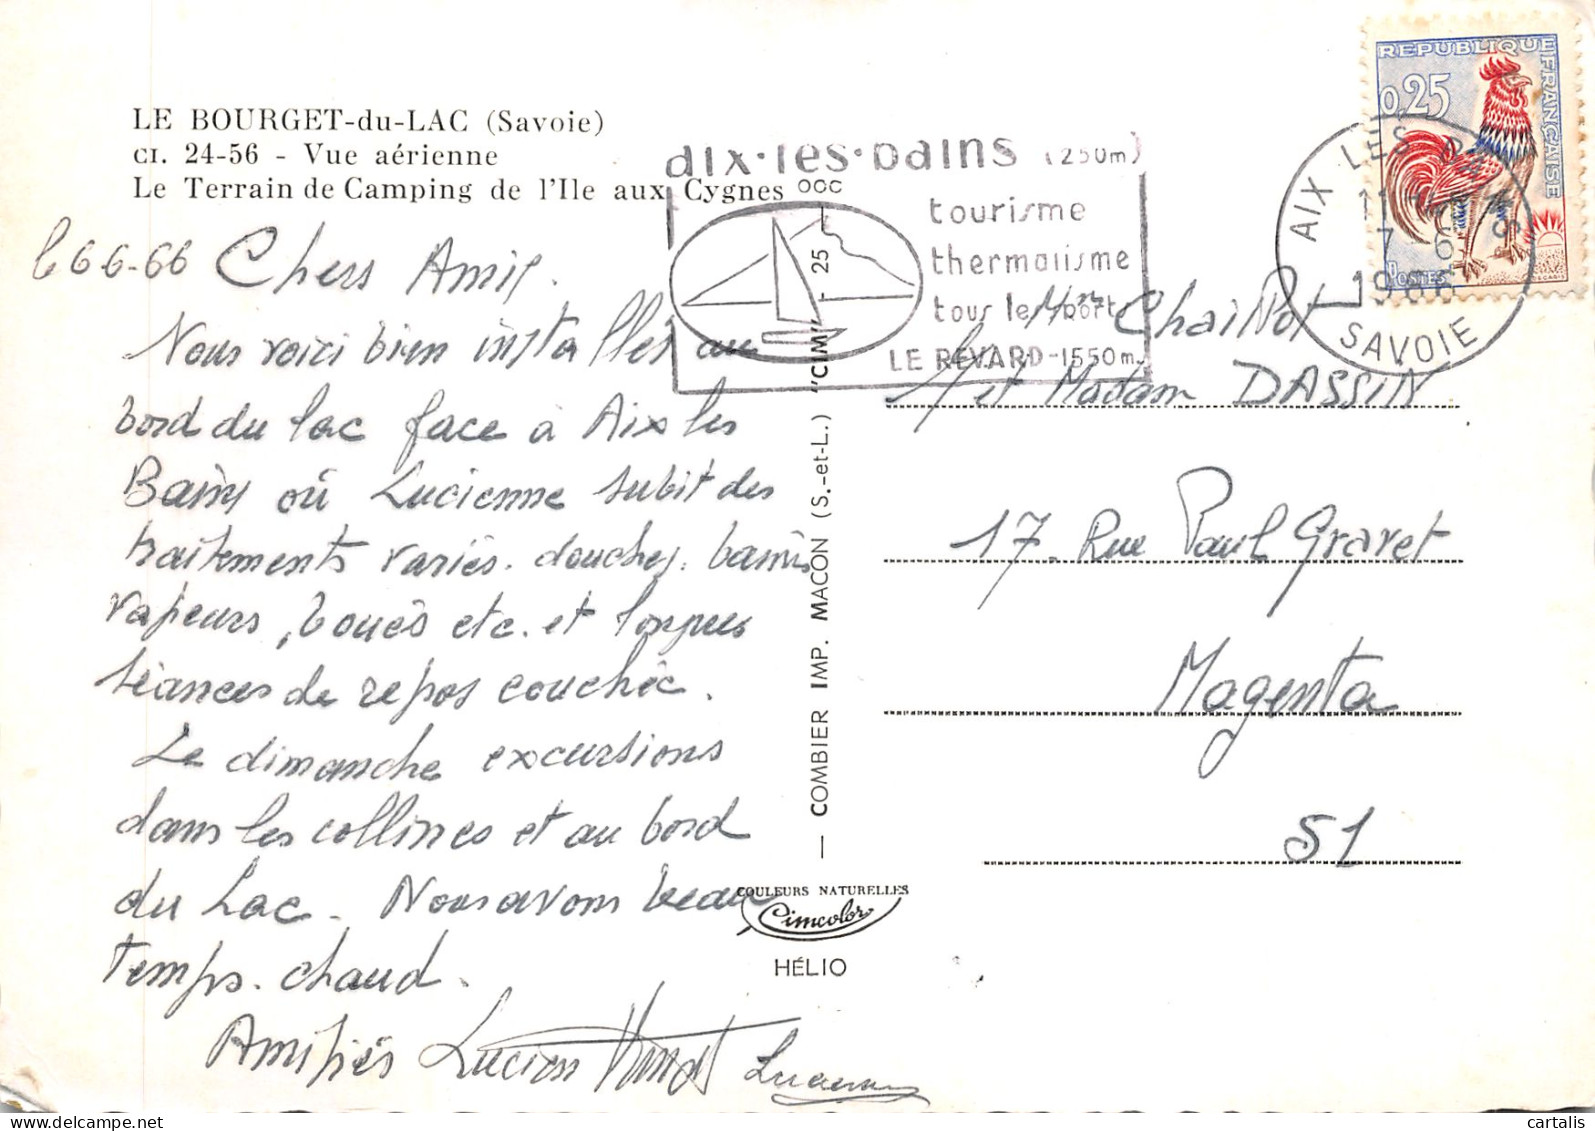 LE BOURGET-du-LAC (Savoie)
CI. 24-56 - Vue aérienne
Le Terrain de Camping de l'Ile aux Cygnes
6 6-66 Chers Amis.
Nous voici bien installés au
bord du lac face à Aix les
Bains où Lucienne subit des
traitements variés. douches. bains
vapeurs, boues etc. et longues
séances de repos couchée.
Le dimanche excursions
dans les collines et au bord
du Lac. Nous avons beau
temps. chaud.
Amitiés Lucien Lucienne
aix·les·bains (250m)
OCC
25
tourisme
thermalisme
tous les sports
LE REVARD-1550m
COMBIER IMP. MACON (S.-et-L.) "CIM"
COULEURS NATURELLES
Cimcolor
HÉLIO
REPUBLIQUE FRANÇAISE
0,25
POSTES
AIX LES BAINS
11
7 6
1966
SAVOIE
Chaillot
M et Madam DASSIN
17. Rue Paul Gravet
Magenta
51
cartalis
www.delcampe.net